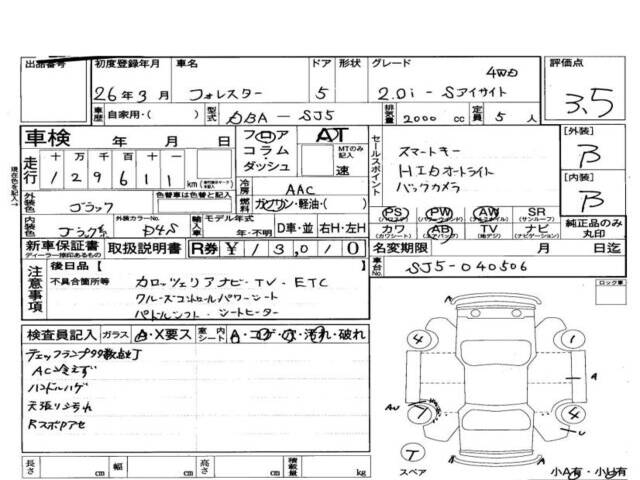 出品番号 初度登録年月 車名 ドア 形状 グレード 評価点
26年3月 フォレスター 5 2.0i-Sアイサイト 4WD 3.5
車歴 自家用・( ) 型式 DBA-SJ5 排気量 2000 cc 定員 5 人
車検 年 月 日 フロア AT
コラム MTのみ記入
ダッシュ 速
走行 十 万 千 百 十 一
1 2 9 6 1 1 km
セールスポイント
スマートキー
HIDオートライト
バックカメラ
[外装] B
[内装] B
冷房 AAC
外装色 色替車は色替と記入 ブラック 燃料 ガソリン・軽油・( )
PS PW AW SR
(パワステ) (パワーウィンド) (アルミホイル) (サンルーフ)
カワ AB TV ナビ
(カワシート) (エアバッグ) (地デジ) (ナビゲーション)
純正品のみ丸印
内装色 外装カラーNo. D4S 輸入車 モデル年式 年・不明 D車・並 右H・左H
新車保証書 取扱説明書 R券 ¥13,010
ディーラー捺印あるもの
名変期限 月 日迄
車台No. SJ5-040506
注意事項 後日品( )
不具合箇所等 カロッツェリアナビ・TV・ETC
クルーズコントロールパワーシート
パドルシフト・シートヒーター
ロック車
検査員記入 ガラス A・X要ス 室内シート A・コゲ・穴・汚れ・破れ
AC冷えず
ハンドルハゲ
天張りシミ汚れ
4 1
A
AU 7 4
U
T
スペア
A
小A有・小U有
長さ cm 幅 cm 高さ cm 積載量 kg
現在色を記入→